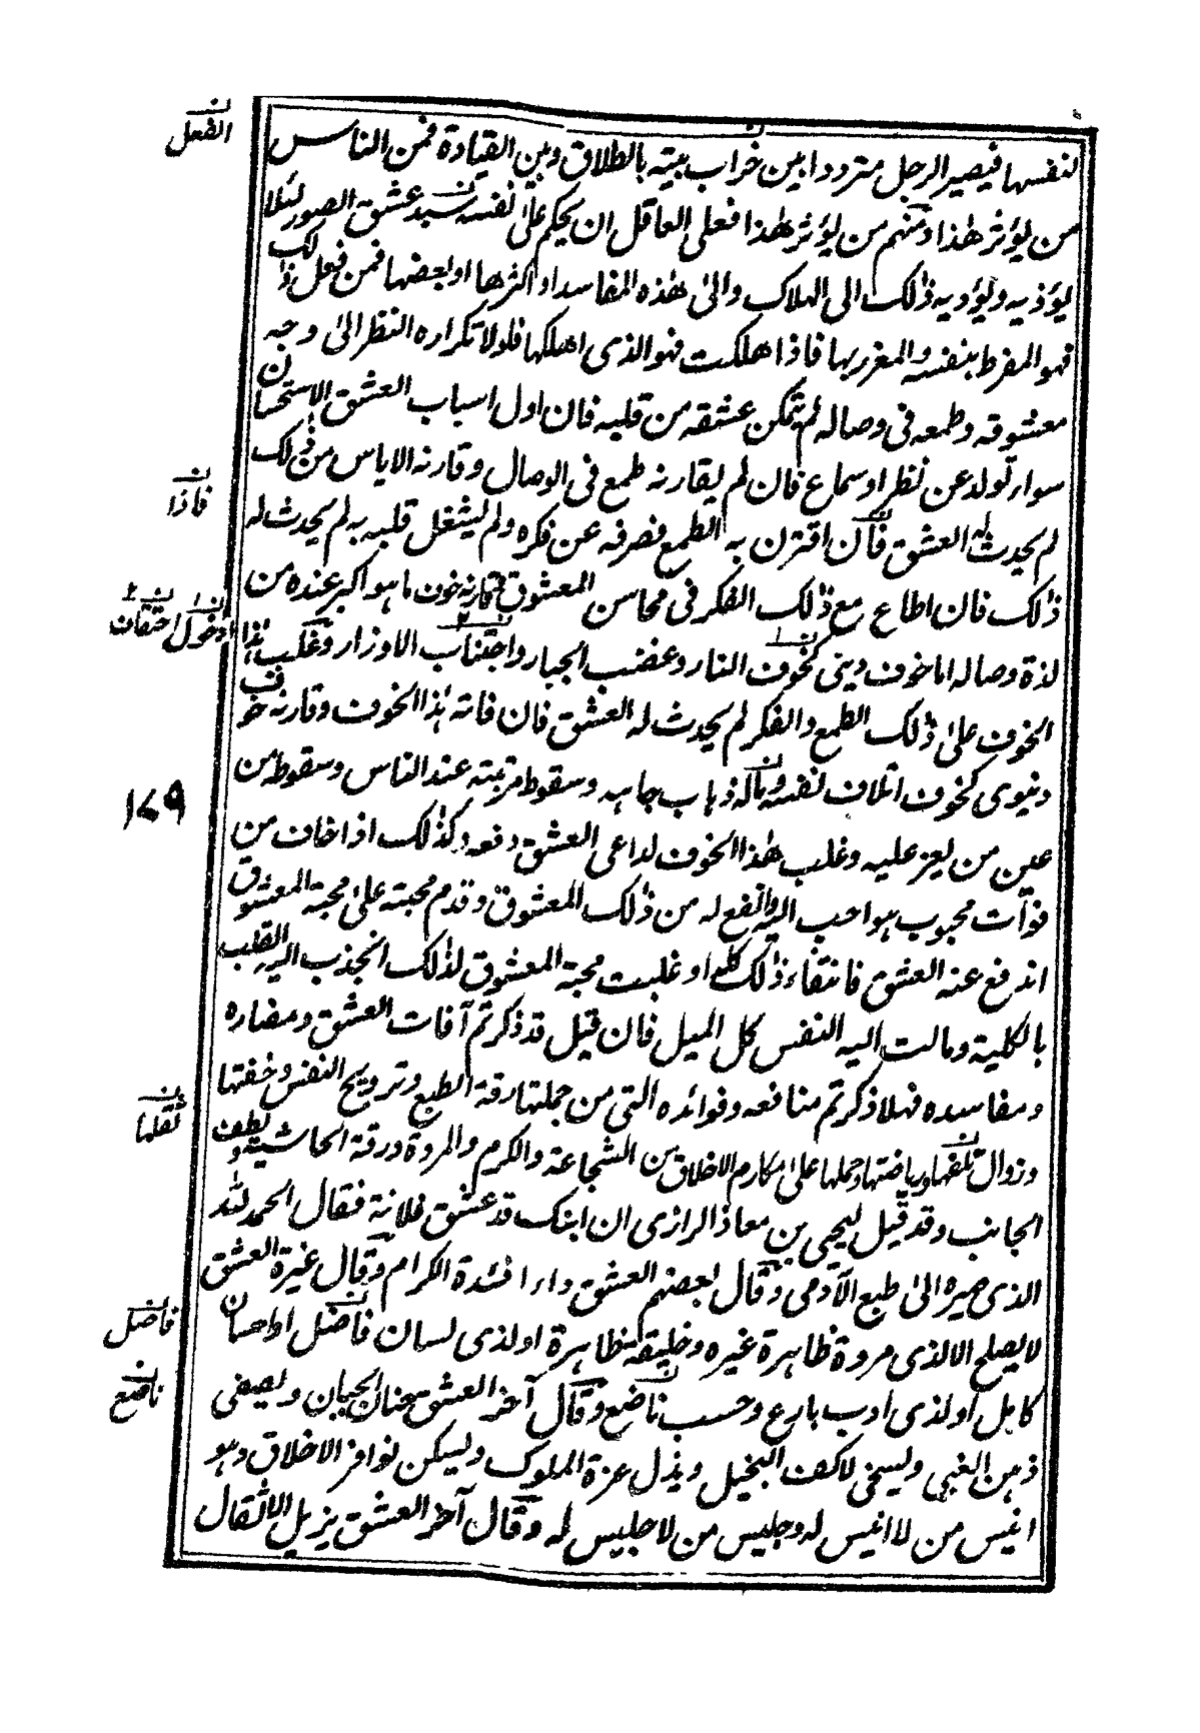 لنفسها فيصير الرجل مترددا بين خراب بيته بالطلاق وبين القيادة فمن الناس
الفعل
من يؤثر هذا ومنهم من يؤثر هذا فعلى العاقل ان يحكم على نفسه سد عشق الصور لئلا
يؤذيه ويؤديه ذلك الى الهلاك والى هذه المفاسد او اكثرها او بعضها فمن فعل ذلك
فهو المفرط بنفسه والمغرر بها فاذا هلكت فهو الذى اهلكها فلولا تكراره النظر الى وجه
معشوقه وطمعه فى وصاله لم يتمكن عشقه من قلبه فان اول اسباب العشق الاستحسان
سواء تولد عن نظر او سماع فان لم يقارنه طمع فى الوصال وقارنه الاياس من ذلك
فاذا
لم يحدث له العشق فان اقترن به الطمع فصرفه عن فكره ولم يشغل قلبه به لم يحدث له
ذلك فان اطاع مع ذلك الفكر فى محاسن المعشوق فقارنه خوف ما هو اكبر عنده من
دخول احتقان
لذة وصاله اما خوف دينى كخوف النار وغضب الجبار واجتناب الاوزار وغلب هذا
الخوف على ذلك الطمع والفكر لم يحدث له العشق فان فاته هذا الخوف وقارنه خوف
دنيوى كخوف اتلاف نفسه وماله ذهاب جاهه وسقوط مرتبته عند الناس وسقوطه من
١٤٩
عين من يعز عليه وغلب هذا الخوف لداعى العشق دفعه وكذلك اذا خاف من
فوات محبوب هو احب اليه وانفع له من ذلك المعشوق وقدم محبته على محبة المعشوق
اندفع عنه العشق فانتفاء ذلك كله او غلبت محبة المعشوق لذلك انجذب اليه القلب
بالكلية ومالت اليه النفس كل الميل فان قيل قد ذكرتم آفات العشق ومضاره
ومفاسده فهلا ذكرتم منافعه وفوائده التى من جملتها رقة الطبع وترويح النفس وخفتها
ثقلها
وزوال تلفها ورياضتها وحملها على مكارم الاخلاق من الشجاعة والكرم والمروة ورقة الحاشية ولطف
الجانب وقد قيل ليحيى بن معاذ الرازى ان ابنك قد عشق فلانة فقال الحمد لله
الذى صيره الى طبع الآدمى وقال بعضهم العشق داء افئدة الكرام وقال غيره العشق
لا يصلح الا لذى مروة ظاهرة غيره وخليقة ظاهرة او لذى لسان فاضل او احسان
فاضل
كامل او لذى ادب بارع وحسب ناضع وقال آخر العشق يجنان الجبان ويصفى
ناصع
ذهن الغبى ويسخى لاكف البخيل ويذل عزة الملوك ويسكن نوافر الاخلاق وهو
انيس من لا انيس له وجليس من لا جليس له وقال آخر العشق يزيل الاثقال